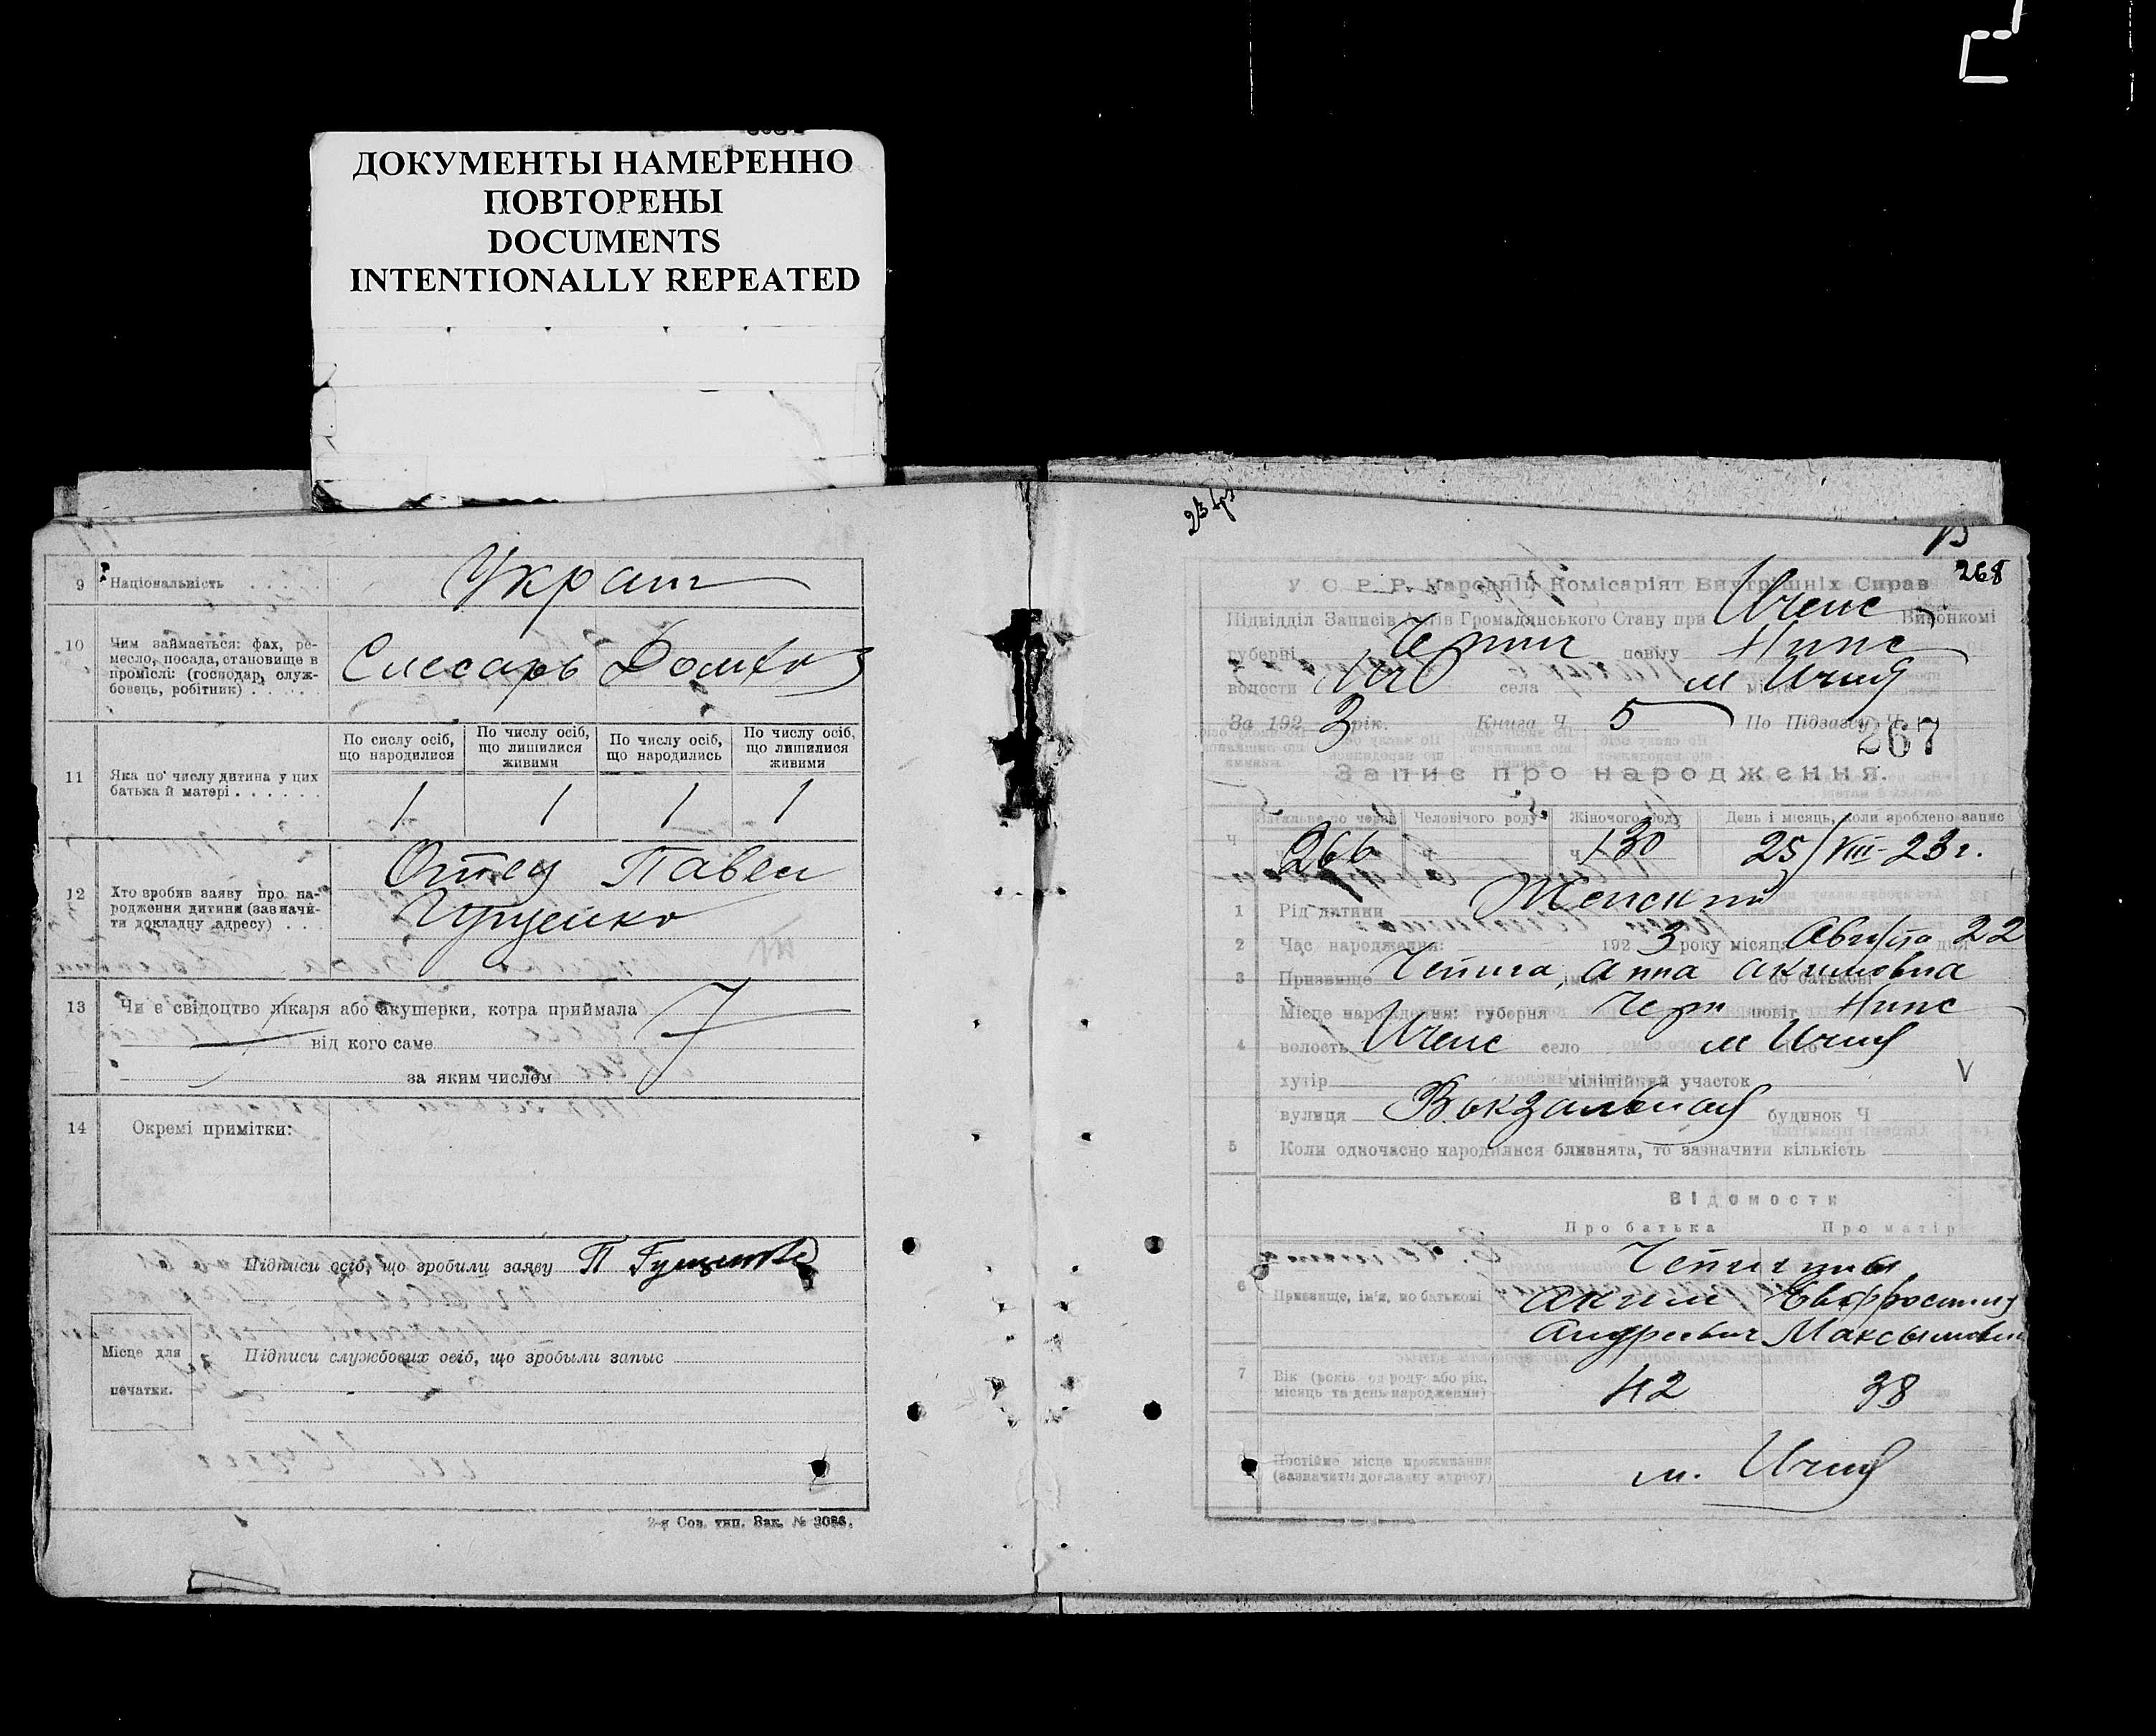 ДОКУМЕНТЫ НАМЕРЕННО
ПОВТОРЕНЫ
DOCUMENTS
INTENTIONALLY REPEATED
9 Національність Украин
10 Чим займається: фах, ре-
месло, посада, становище в
промислі: (господар, служ-
бовець, робітник)
Слесарь Домхоз
11 Яка по числу дитина у цих
батька й матері
По сислу осіб,
що народилися
По числу осіб,
що лишилися
живими
По числу осіб,
що народились
По числу осіб,
що лишилися
живими
1 1 1 1
12 Хто зробив заяву про на-
родження дитини (зазначи-
ти докладну адресу)
Отец Павел
Гущенко
13 Чи є свідоцтво лікаря або акушерки, котра приймала
від кого саме
за яким числом
14 Окремі примітки:
Підписи осіб, що зробили заяву П Гущенко
Місце для
печатки.
Підписи службових осіб, що зробыли запыс
2-я Сов. тип. Зак. № 3086.
268
У С. Р. Р. Народній Комісаріят Внутрішніх Справ
Підвідділ Записів Актів Громадянського Стану при Иченс Виконкомі
губерні Черниг повіту Нинс
волости Ич села м міста Ичня
За 1923 рік. Книга Ч. 5 По Підзагсу Ч.
267
Запис про народження.
Загальне по черзі Человічого роду Жіночого роду День і місяць, коли зроблено запис
Ч 266 Ч 130 25/VIII-23 г.
1 Рід дитини Женский
2 Час народження: 1923 року місяць Августа дня 22
3 Призвище Чепига ім'я Анна по батькові Акимовна
4 Місце народження: губерня Черн повіт Нинс
волость Иченс село м Ичня
хутір міліційний участок V
вулиця Вокзальная будинок Ч
5 Коли одночасно народилися близнята, то зазначити кількість
Відомости
Про батька Про матір
6 Призвище, ім'я, по батькові
Чепигины
Аким Евфросиния
Андреевич Максымовна
7 Вік (років од роду або рік,
місяць та день народження) 42 38
Постійне місце проживання
(зазначити докладну адресу) м. Ичня